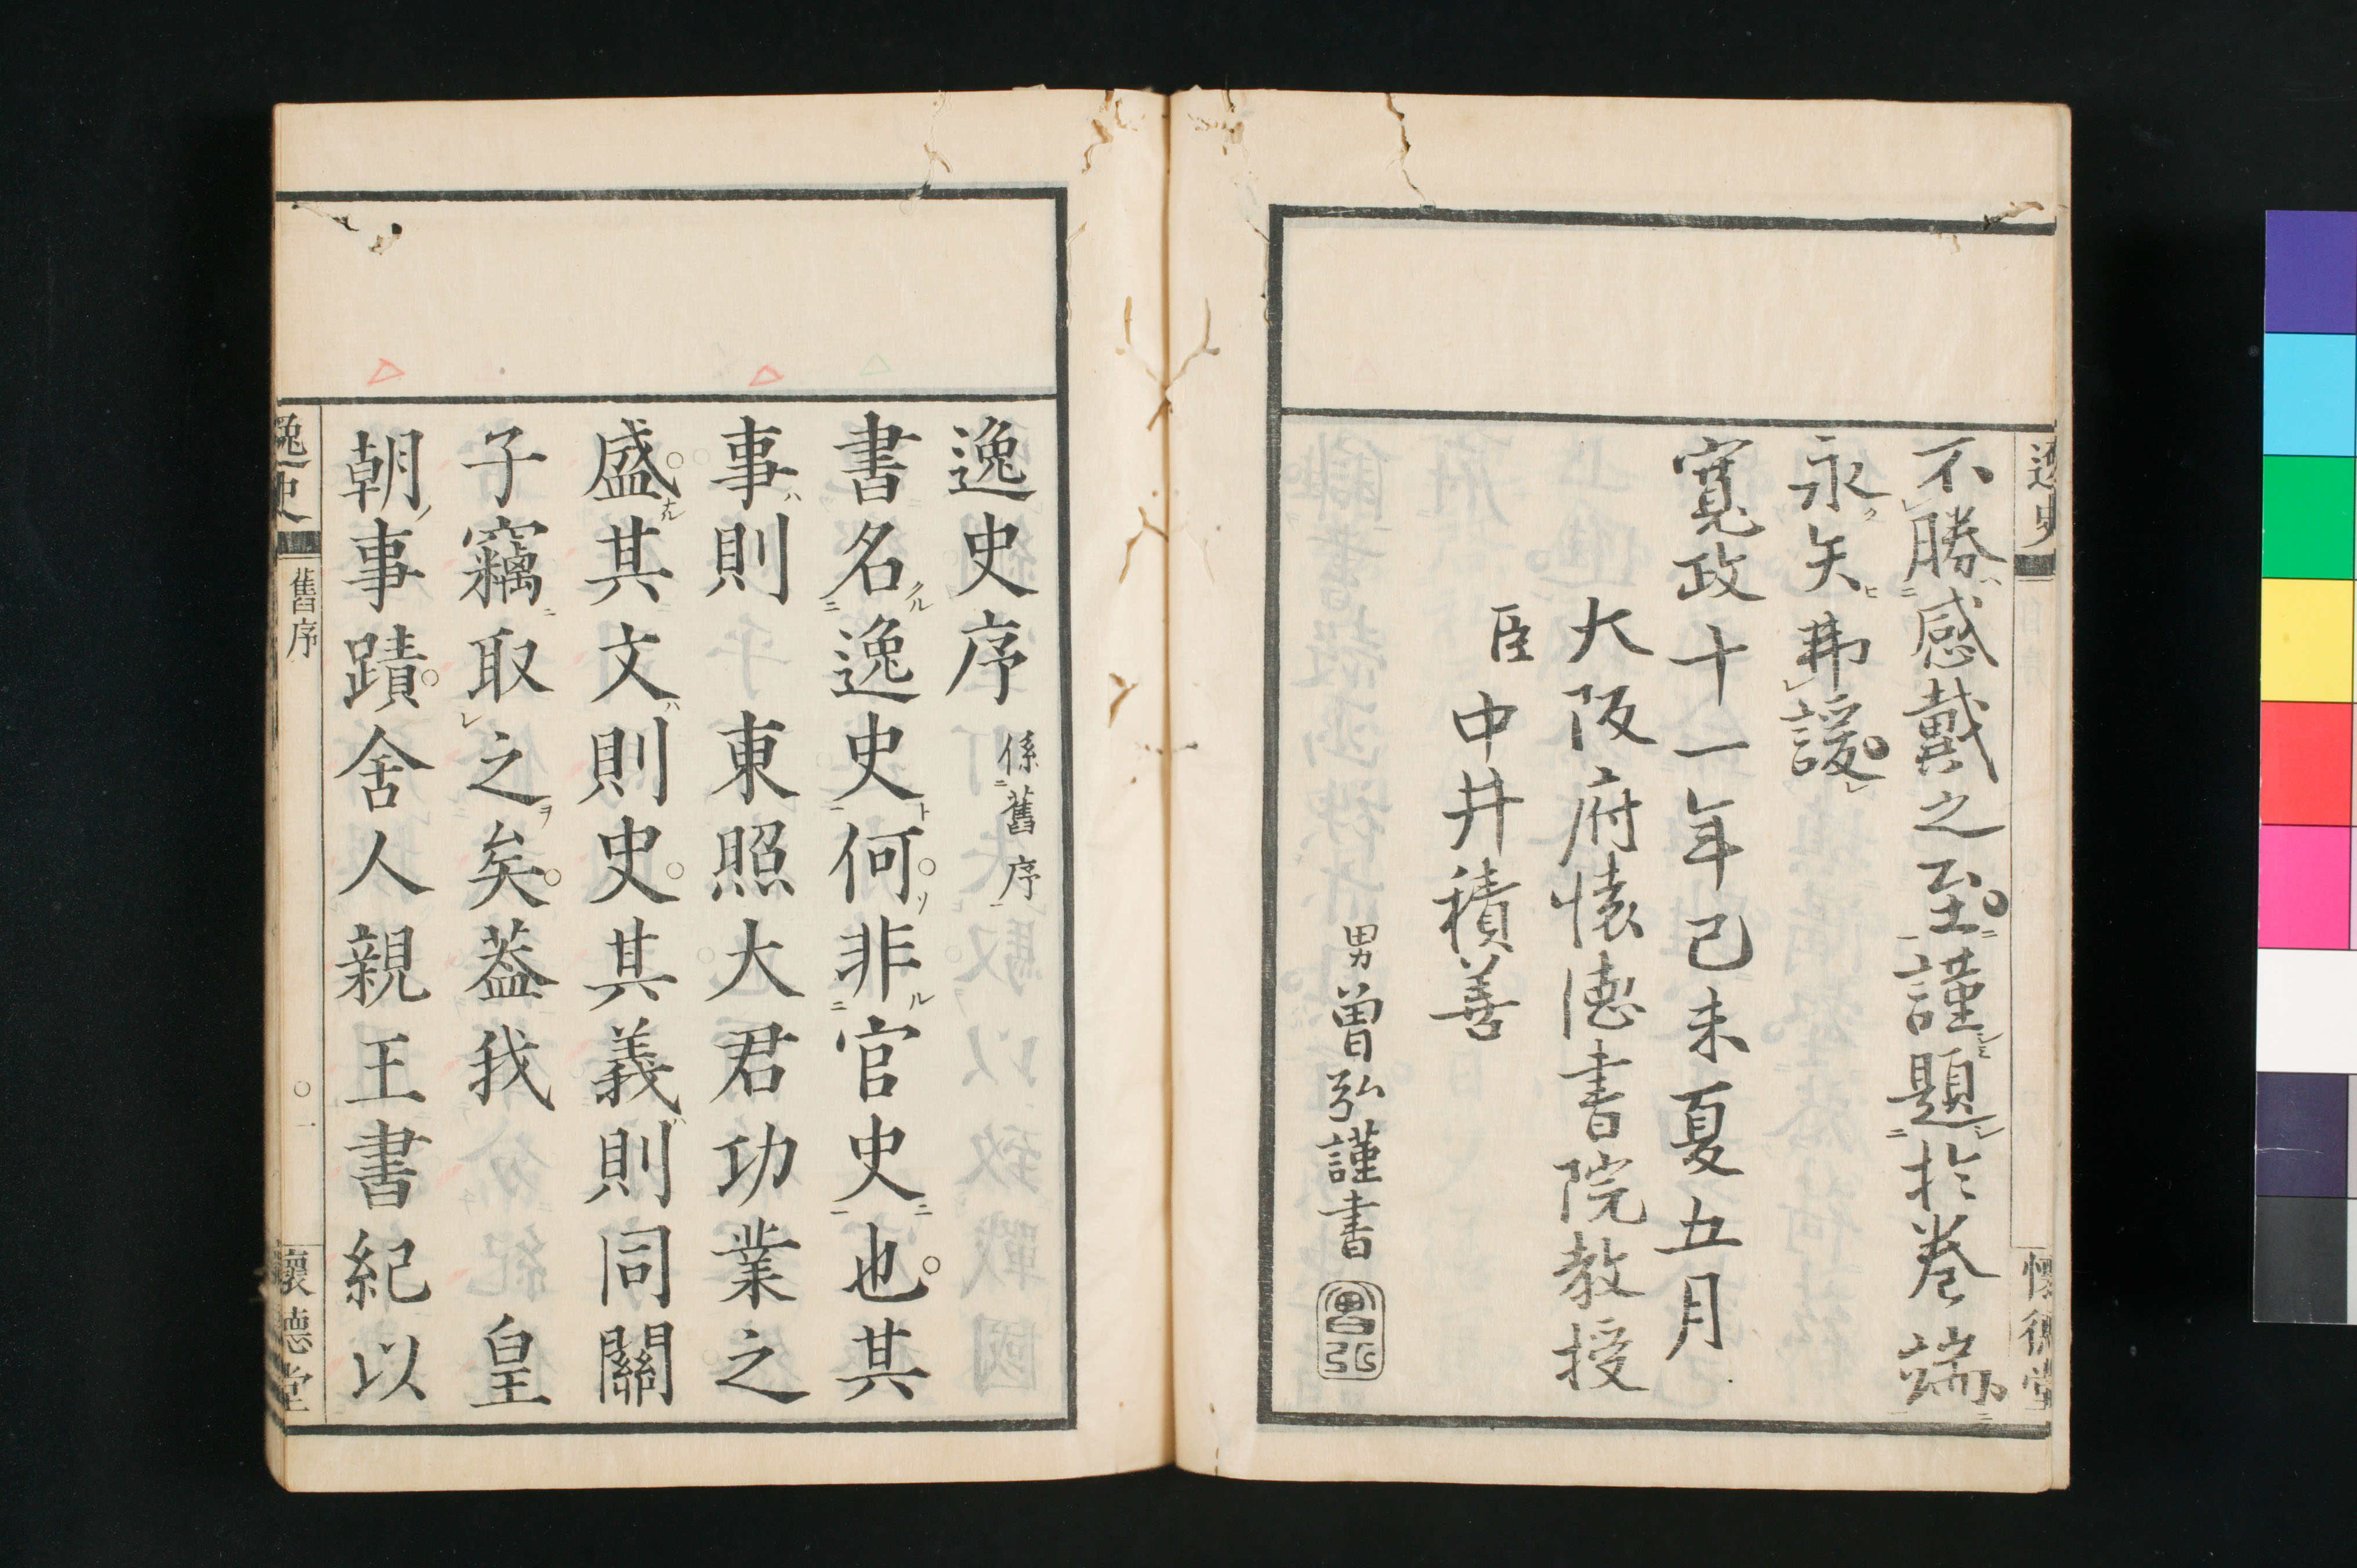 不勝感戴之至謹題於卷端
永矢弗諼
寬政十一年己未夏五月
大阪府懷德書院教授
臣 中井積善
男曾弘謹書
曾弘
逸史
懷德堂
逸史序 係舊序
書名逸史何非官史也其
事則 東照大君功業之
盛其文則史其義則同關
子竊取之矣蓋我 皇
朝事蹟舍人親王書紀以
逸史
舊序
一
懷德堂